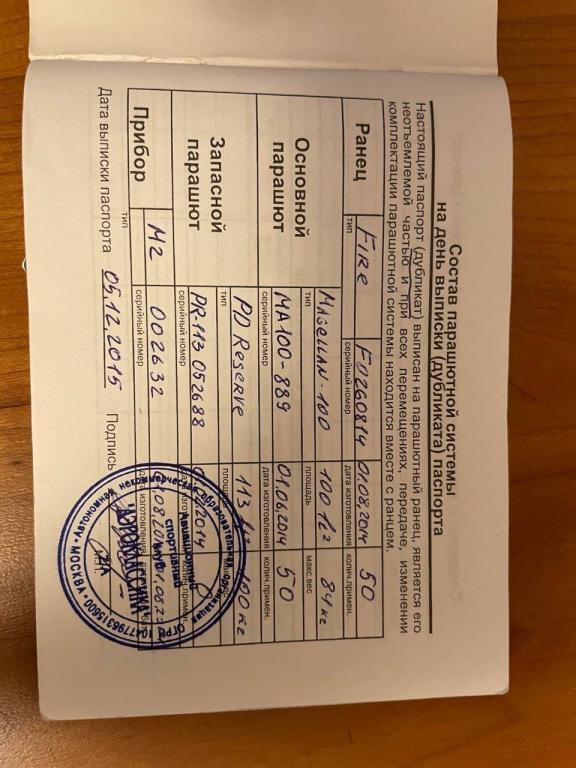 Состав парашютной системы
на день выписки (дубликата) паспорта
Настоящий паспорт (дубликат) выписан на парашютный ранец, является его
неотъемлемой частью и при всех перемещениях, передаче, изменении
комплектации парашютной системы находится вместе с ранцем.
Ранец FIRE F0260814 01.08.2014 50
тип серийный номер дата изготовления колич.примен.
Основной парашют MAGELLAN-100 100 ft² 84 кг
тип площадь макс.вес
MA100-889 01.06.2014 50
серийный номер дата изготовления колич.примен.
Запасной парашют PD Reserve 113 100 кг
тип площадь
PR113 052688 2014
серийный номер колич.примен.
Прибор M2 002632
тип серийный номер дата изготовления
Дата выписки паспорта 05.12.2015 Подпись
Автономная некоммерческая образовательная организация
МОСКВА
ОГРН 1047796315600
Авиационно
спортивный
клуб